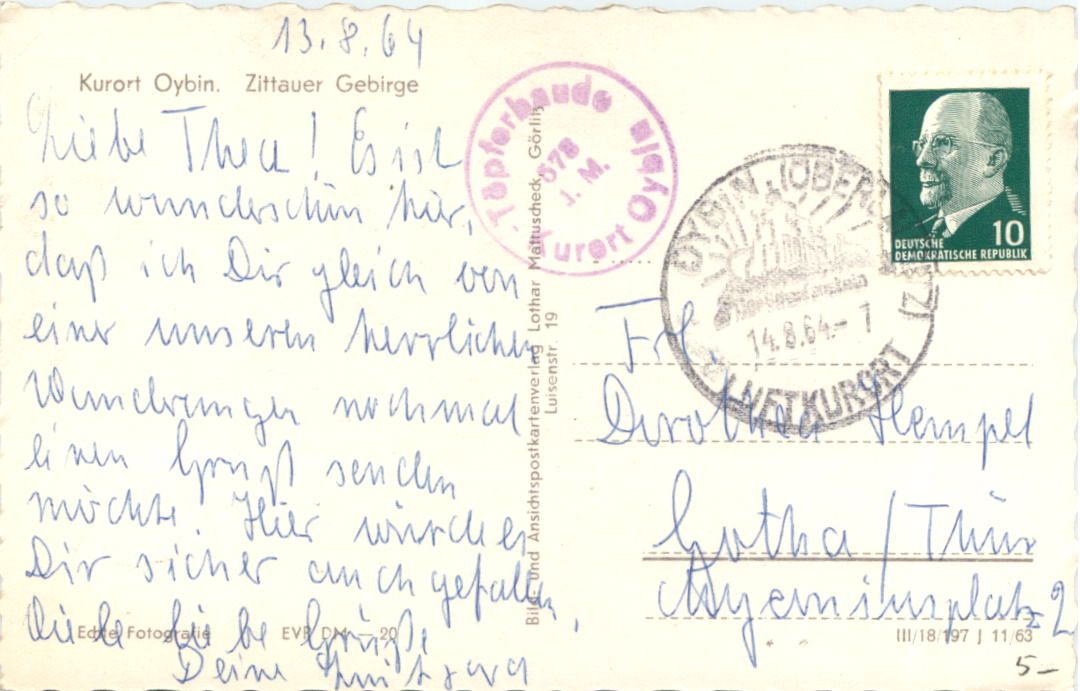 13.8.64
Kurort Oybin. Zittauer Gebirge
Liebe Thea! Es ist
so wunderschön hier,
daß ich Dir gleich von
einer unseren herrlichen
Wanderungen nochmal
einen Gruß senden
möchte. Hier würde es
Dir sicher auch gefallen,
Viele liebe Grüße
Deine
Echte Fotografie EVP DM –.20
Töpferbaude
678
J. M.
Kurort Oybin
Bild- und Ansichtspostkartenverlag Lothar Mattuscheck, Görlitz
Luisenstr. 19
OYBIN
14.8.64.– 7
LUFTKURORT
10
DEUTSCHE
DEMOKRATISCHE REPUBLIK
Frl.
Dorothea Hempel
Gotha / Thür
2
III/18/197 J 11/63
5–